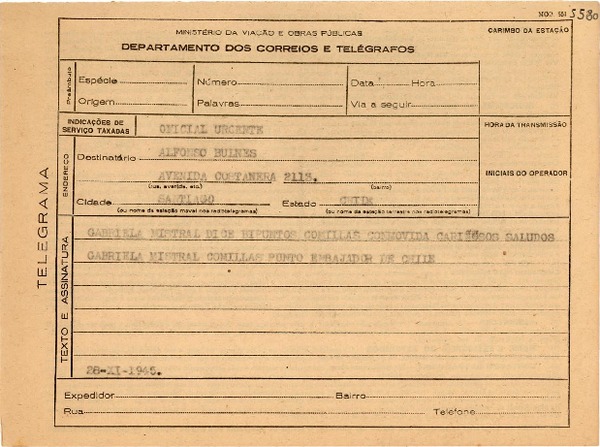 MOD. 151 5580
MINISTÉRIO DA VIAÇÃO E OBRAS PÚBLICAS
DEPARTAMENTO DOS CORREIOS E TELÉGRAFOS
CARIMBO DA ESTAÇÃO
Preâmbulo
Espécie Número Data Hora
Origem Palavras Via a seguir
INDICAÇÕES DE SERVIÇO TAXADAS
OFICIAL URGENTE
HORA DA TRANSMISSÃO
ENDEREÇO
Destinatário ALFONSO BULNES
AVENIDA COSTANERA 2113.
(rua, avenida, etc.) (bairro)
INICIAIS DO OPERADOR
Cidade SANTIAGO Estado CHILE
(ou nome da estação móvel nos radiotelegramas) (ou nome da estação terrestre nos radiotelegramas)
TELEGRAMA
TEXTO E ASSINATURA
GABRIELA MISTRAL DICE BIPUNTOS COMILLAS CONMOVIDA CARIÑOSOS SALUDOS
GABRIELA MISTRAL COMILLAS PUNTO EMBAJADOR DE CHILE
28-XI-1945.
Expedidor Bairro
Rua Telefone